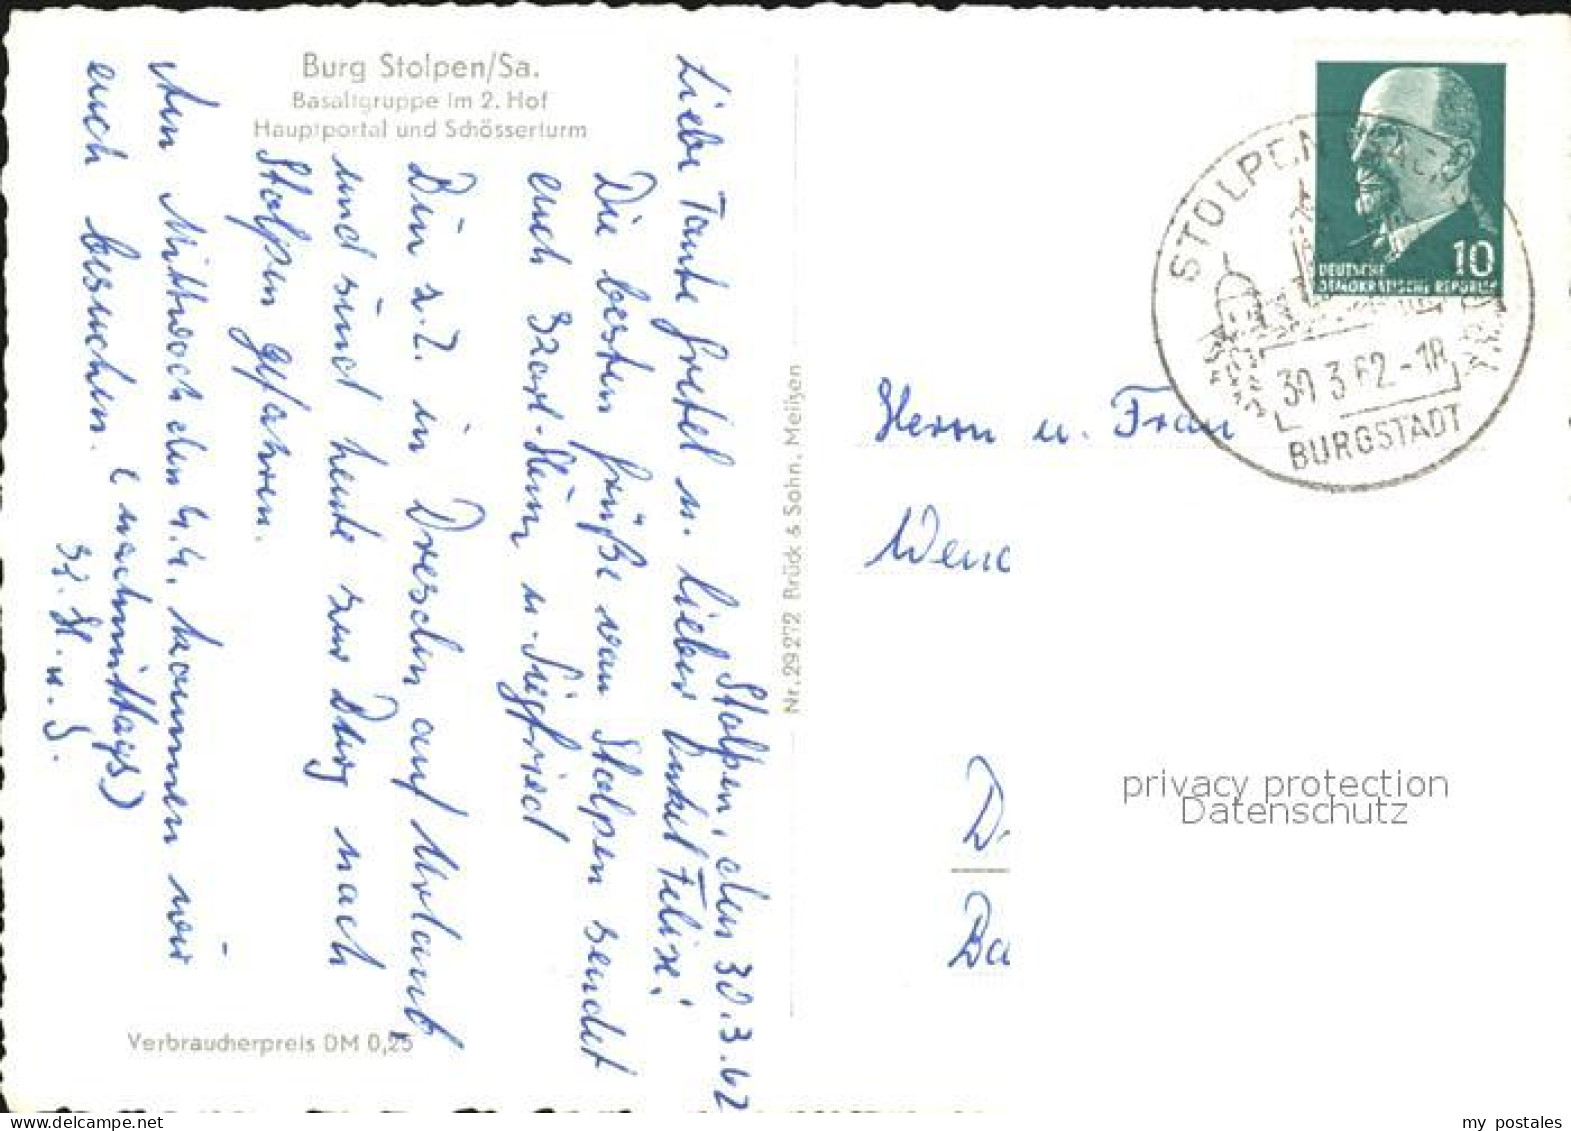 Burg Stolpen/Sa.
Basaltgruppe im 2. Hof
Hauptportal und Schösserturm
Stolpen, den 30.3.62
Liebe Tante Gretel u. lieber Onkel Felix!
Die besten Grüße von Stolpen sendet
euch Karl-Heinz u. Siegfried
Bin z.Z. in Dresden auf Urlaub,
und sind heute zur Burg nach
Stolpen gefahren.
Am Mittwoch den 4.4. kommen wir
euch besuchen. (nachmittags)
H. u. S.
Verbraucherpreis DM 0,25
Nr. 29272 Brück & Sohn, Meißen
10
DEUTSCHE
DEMOKRATISCHE REPUBLIK
STOLPEN
30.3.62-18
BURGSTADT
Herrn u. Frau
Wend
D
Ba
privacy protection
Datenschutz
my_postales